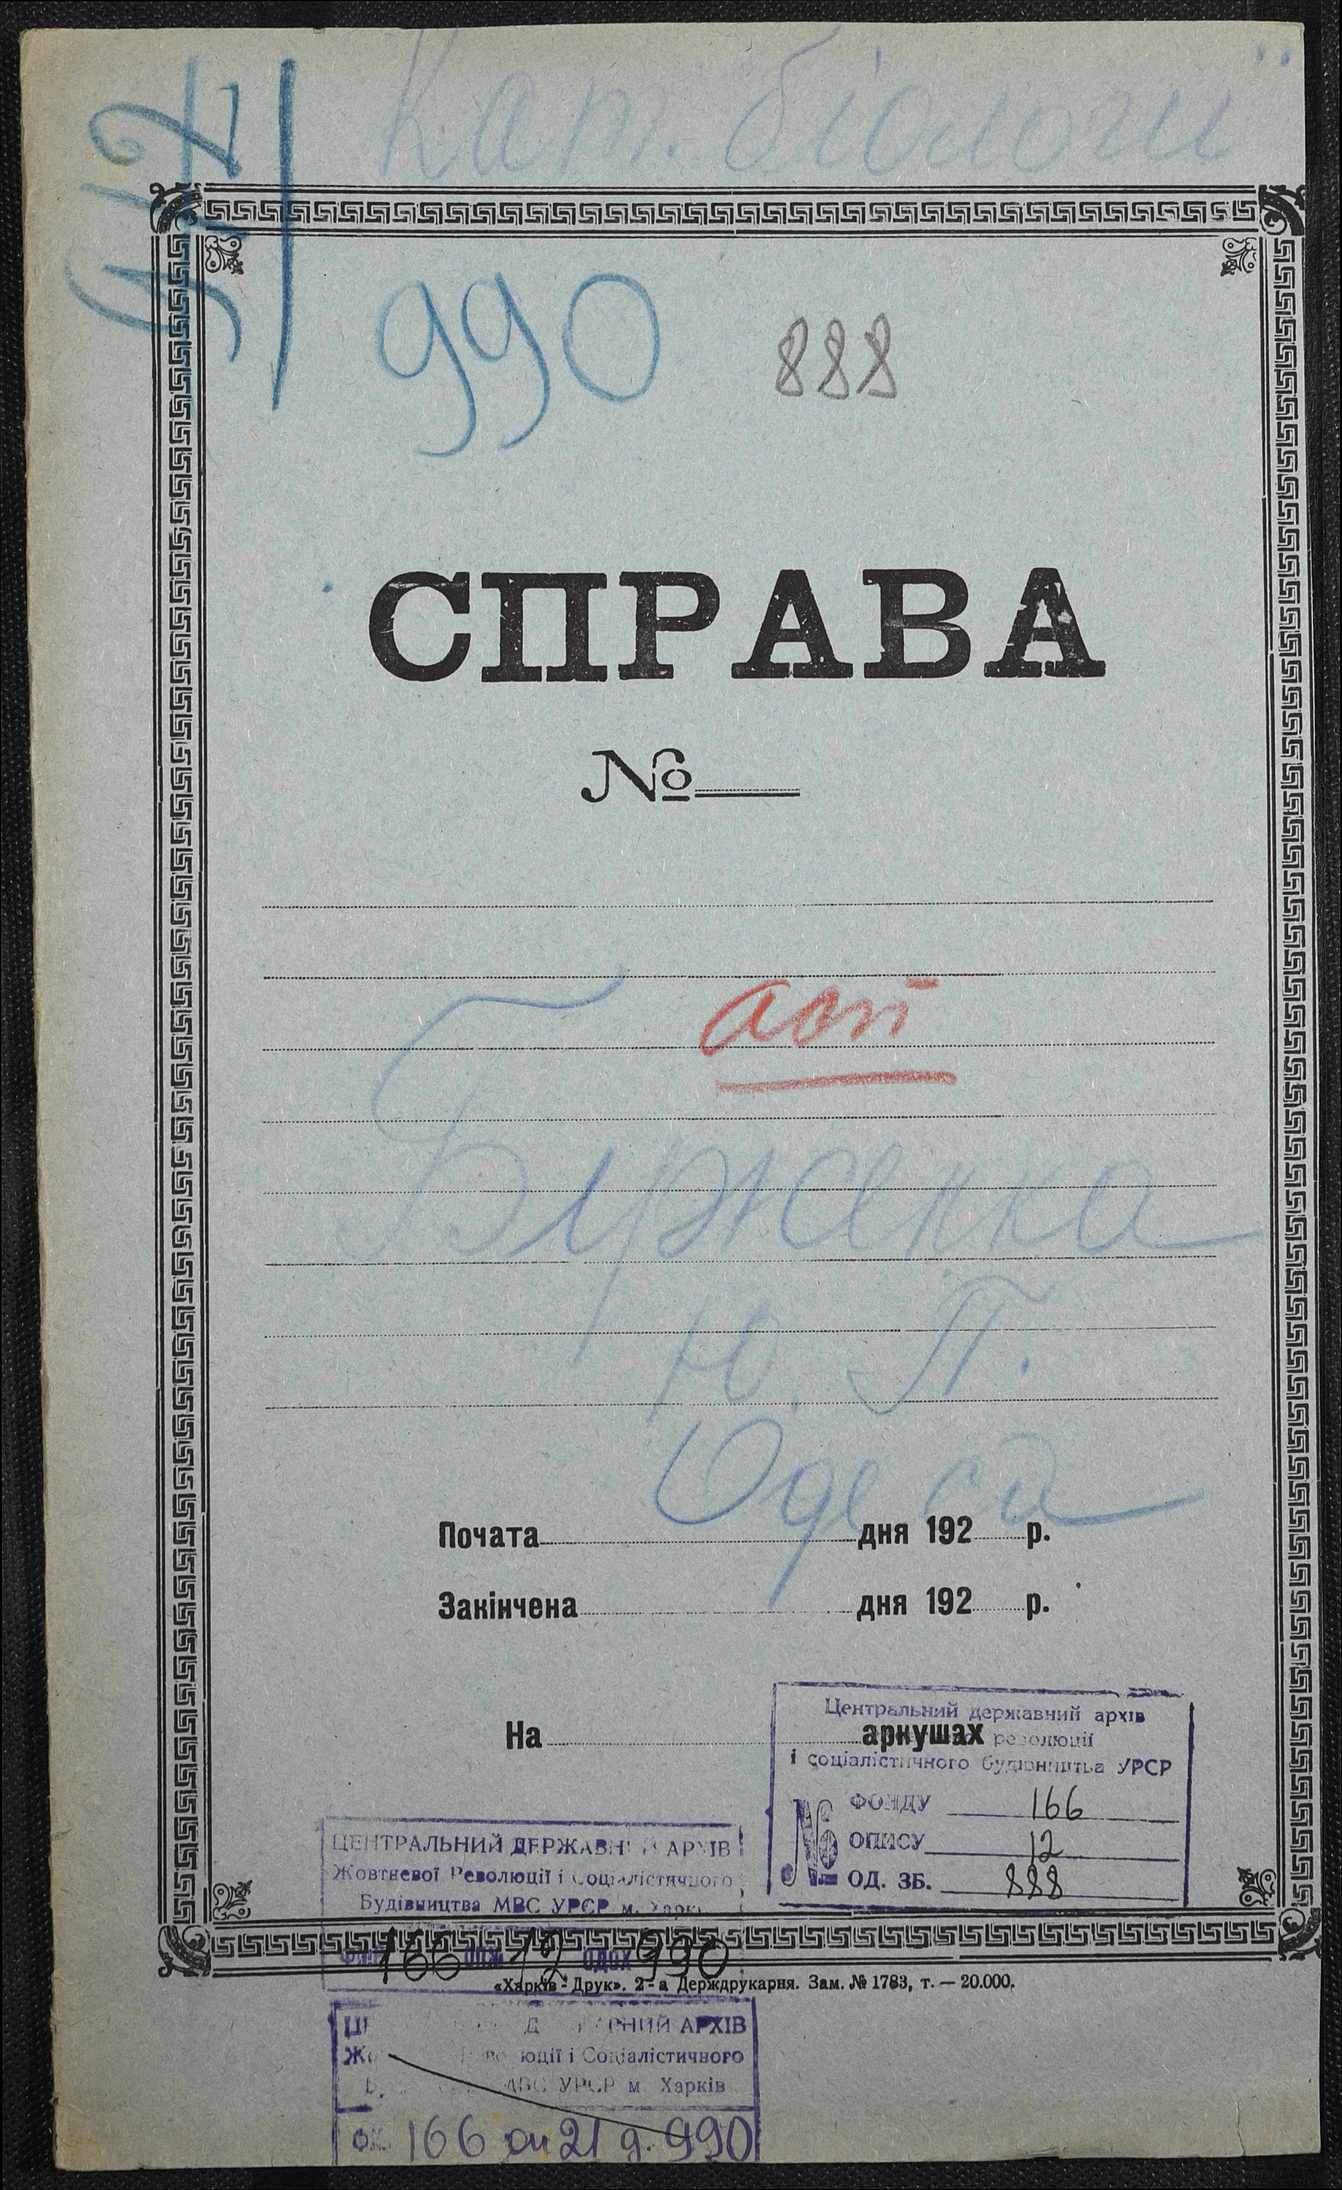 Кат. біології
990 888
СПРАВА
№
асп
Бурженка
Ю. П.
Одеса
Почата дня 192 р.
Закінчена дня 192 р.
На аркушах
Центральний державний архів
революції
і соціалістичного будівництва УРСР
№
ФОНДУ 166
ОПИСУ 12
ОД. ЗБ. 888
ЦЕНТРАЛЬНИЙ ДЕРЖАВНИЙ АРХІВ
Жовтневої Революції і Соціалістичного
Будівництва МВС УРСР м. Харків
166 12 990
«Харків-Друк». 2-а Держдрукарня. Зам. № 1783, т. — 20.000.
АРХІВ
Революції і Соціалістичного
МВС УРСР м. Харків
166 оп 21 д. 990